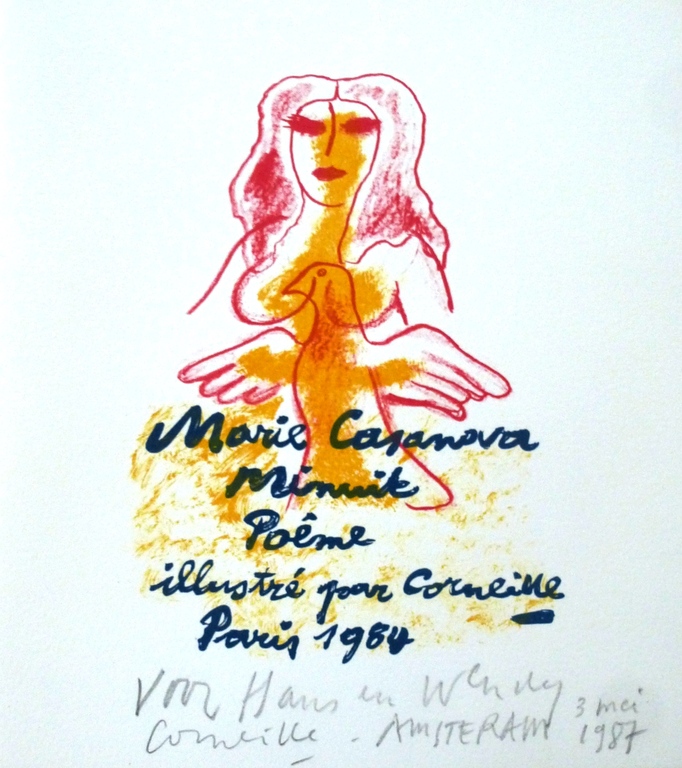 Marie Casanova
Minuit
Poême
illustré par Corneille
Paris 1984
Voor Hans en Wendy
Corneille - AMSTERDAM 3 mei 1987